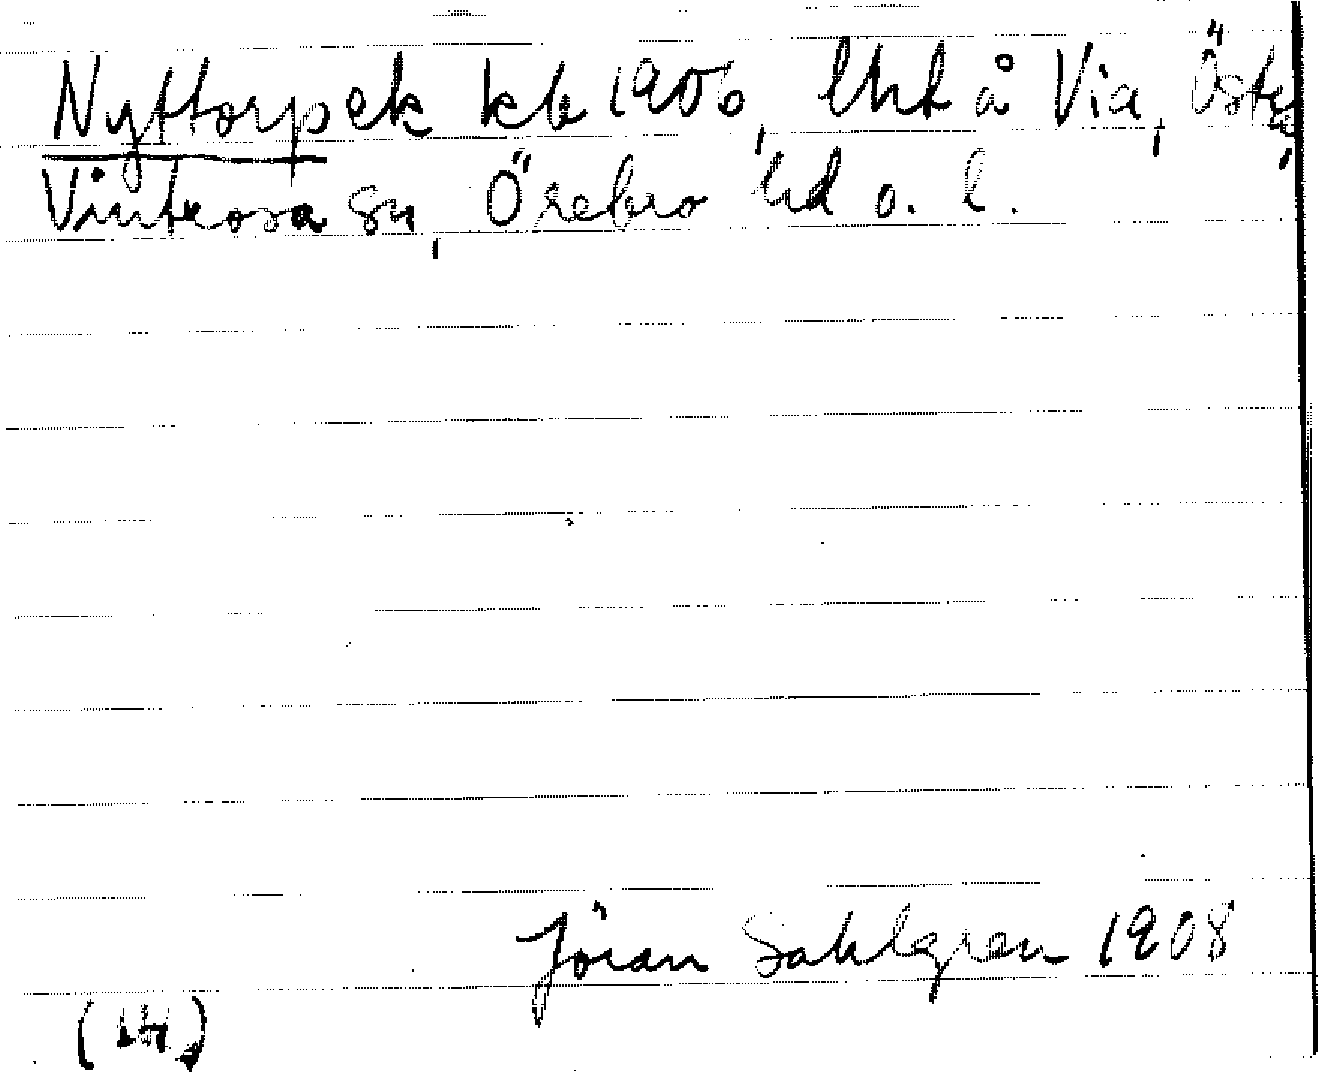 Nyttorp ek kb 1906, lht å Via, Öster
Vintrosa sn, Örebro hd o. l.
Jöran Sahlgren 1908